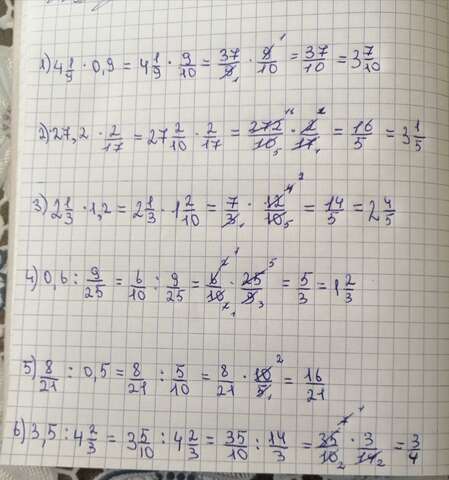 1) 4 1/9 · 0,9 = 4 1/9 · 9/10 = 37/9 1 · 9/10 1 = 37/10 = 3 7/10
2) 27,2 · 2/17 = 27 2/10 · 2/17 = 272/10 16 5 · 2/17 1 1 = 16/5 = 3 1/5
3) 2 1/3 · 1,2 = 2 1/3 · 1 2/10 = 7/3 1 · 12/10 4 2 5 = 14/5 = 2 4/5
4) 0,6 : 9/25 = 6/10 : 9/25 = 6/10 2 1 2 1 · 25/9 5 3 = 5/3 = 1 2/3
5) 8/21 : 0,5 = 8/21 : 5/10 = 8/21 · 10/5 2 1 = 16/21
6) 3,5 : 4 2/3 = 3 5/10 : 4 2/3 = 35/10 : 14/3 = 35/10 7 1 2 · 3/14 2 = 3/4